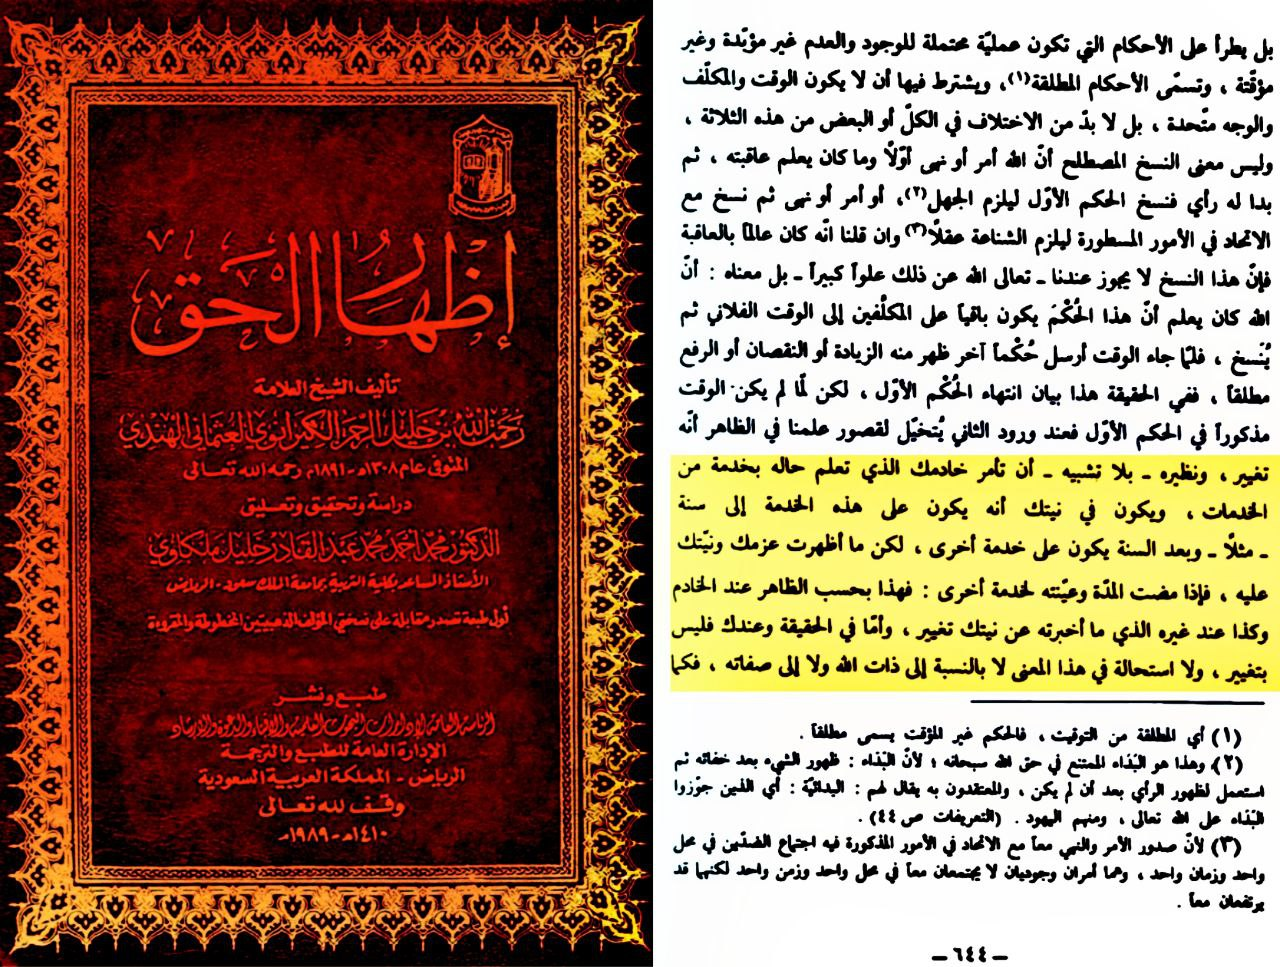 إظهار الحق
تأليف الشيخ العلامة
رحمت الله بن خليل الرحمن الكيرانوي العثماني الهندي
المتوفى عام ١٣٠٨هـ - ١٨٩١م رحمه الله تعالى
دراسة وتحقيق وتعليق
الدكتور محمد أحمد محمد عبد القادر خليل ملكاوي
الأستاذ المساعد بكلية التربية بجامعة الملك سعود - الرياض
أول طبعة تصدر مقابلة على نسختي المؤلف الذهبيتين المخطوطة والمقروءة
طبع ونشر
الرئاسة العامة لإدارات البحوث العلمية والإفتاء والدعوة والإرشاد
الإدارة العامة للطبع والترجمة
الرياض - المملكة العربية السعودية
وقف لله تعالى
١٤١٠هـ - ١٩٨٩م
بل يطرأ على الأحكام التي تكون عمليّة محتملة للوجود والعدم غير مؤبّدة وغير
مؤقّتة ، وتسمّى الأحكام المطلقة(١)، ويشترط فيها أن لا يكون الوقت والمكلّف
والوجه متّحدة ، بل لا بدّ من الاختلاف في الكلّ أو البعض من هذه الثلاثة ،
وليس معنى النسخ المصطلح أنّ الله أمر أو نهى أوّلاً وما كان يعلم عاقبته ، ثم
بدا له رأي فنسخ الحكم الأوّل ليلزم الجهل(٢)، أو أمر أو نهى ثم نسخ مع
الاتحاد في الأمور المسطورة ليلزم الشناعة عقلاً(٣) وان قلنا انّه كان عالماً بالعاقبة
فإنّ هذا النسخ لا يجوز عندنا ـ تعالى الله عن ذلك علواً كبيراً ـ بل معناه : أنّ
الله كان يعلم أنّ هذا الحُكْمَ يكون باقياً على المكلّفين إلى الوقت الفلاني ثم
يُنسخ ، فلمّا جاء الوقت أرسل حُكْماً آخر ظهر منه الزيادة أو النقصان أو الرفع
مطلقاً ، ففي الحقيقة هذا بيان انتهاء الحُكْم الأوّل ، لكن لمّا لم يكن الوقت
مذكوراً في الحكم الأوّل فعند ورود الثاني يُتخيّل لقصور علمنا في الظاهر أنّه
تغيير ، ونظيره ـ بلا تشبيه ـ أن تأمر خادمك الذي تعلم حاله بخدمة من
الخدمات ، ويكون في نيتك أنه يكون على هذه الخدمة إلى سنة
ـ مثلاً ـ وبعد السنة يكون على خدمة أخرى ، لكن ما أظهرت عزمك ونيّتك
عليه ، فإذا مضت المدّة وعيّنته لخدمة أخرى : فهذا بحسب الظاهر عند الخادم
وكذا عند غيره الذي ما أخبرته عن نيتك تغيير ، وأمّا في الحقيقة وعندك فليس
بتغيير ، ولا استحالة في هذا المعنى لا بالنسبة إلى ذات الله ولا إلى صفاته ، فكما
(١) أي المطلقة من التوقيت ، فالحكم غير المؤقت يسمى مطلقاً .
(٢) وهذا هو البَدَاء الممتنع في حق الله سبحانه ؛ لأنّ البَدَاء : ظهور الشيء بعد خفائه ثم
استعمل لظهور الرأي بعد أن لم يكن ، والمعتقدون به يقال لهم : البدائيّة : أي الذين جوّزوا
البَدَاء على الله تعالى ، ومنهم اليهود . (التعريفات ص ٤٤) .
(٣) لأنّ صدور الأمر والنهي معاً مع الاتحاد في الأمور المذكورة فيه اجتماع الضدّين في محل
واحد وزمان واحد ، وهما أمران وجوديان لا يجتمعان معاً في محل واحد وزمن واحد لكنهما قد
يرتفعان معاً .
ـ ٦٤٤ ـ